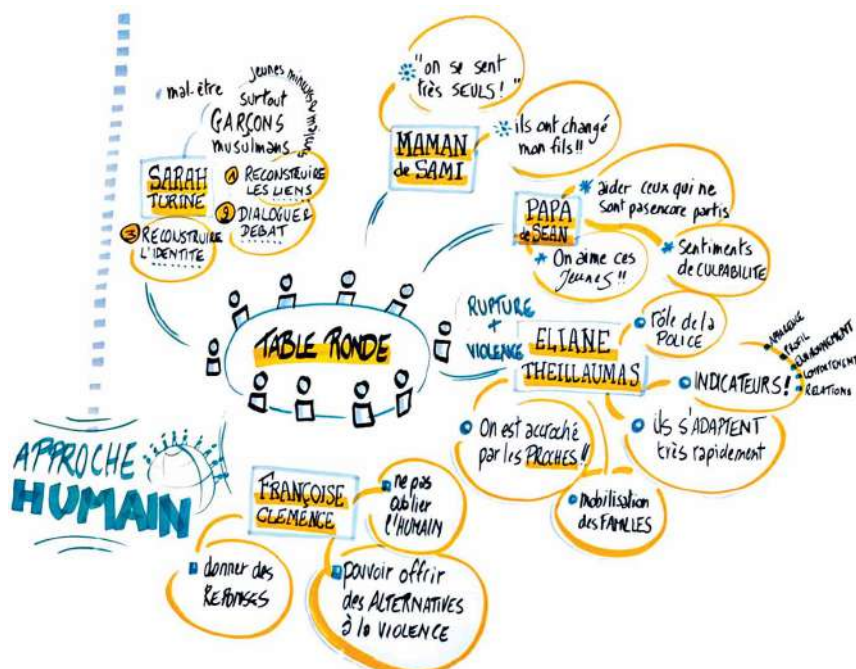 mal-être
jeunes mineurs & majeurs
surtout
GARÇONS
musulmans
SARAH
TURINE
① RECONSTRUIRE
LES LIENS
② DIALOGUER
DEBAT
③ RECONSTRUIRE
L'IDENTITE
"on se sent
très SEULS!"
MAMAN
de SAMI
ils ont changé
mon fils!!
PAPA
de SEAN
aider ceux qui ne
sont pas encore partis
Sentiments
de CULPABILITE
On aime ces
Jeunes!!
TABLE RONDE
RUPTURE
+
VIOLENCE
ELIANE
THEILLAUMAS
rôle de la
POLICE
INDICATEURS!
APPARENCE
PROFIL
ENVIRONNEMENT
COMPORTEMENT
RELATIONS
ils S'ADAPTENT
très rapidement
On est accroché
par les PROCHES!!
mobilisation
des FAMILLES
APPROCHE
HUMAIN
FRANÇOISE
CLEMENCE
ne pas
oublier
l'HUMAIN
donner des
REPONSES
pouvoir offrir
des ALTERNATIVES
à la VIOLENCE